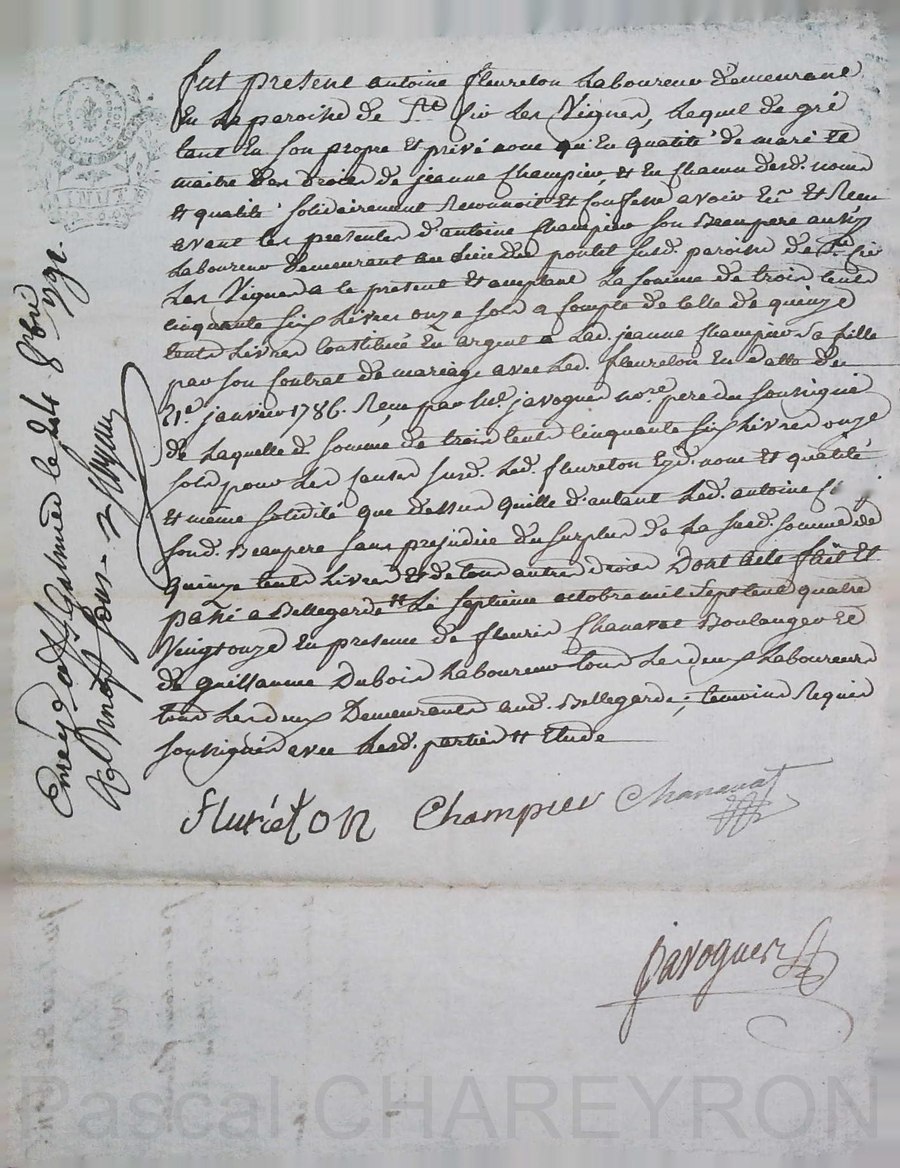 fut présent antoine fleureton laboureur demeurant
En la paroisse de St Cir les Vignes, lequel de gré
tant En son propre et privé nom qu'En qualité de mari et
maitre des droits de jeanne Champier, et En chacun desd. noms
et qualité solidairement Reconnoit et Confesse avoir Eu et Reçu
avant les presentes d'antoine Champier son Beaupere aussy
Laboureur demeurant au lieu du pontet susd. paroisse de St Cir
Les Vignes a ce présent et acceptant La somme de trois cents
cinquante six Livres onze sols a Compte de celle de quinze
cents Livres Constituée En argent a lad. jeanne Champier sa fille
par son Contrat de mariage avec led. fleureton En datte du
21e. janvier 1786. Reçu par Me. javogues nore. pere du soussigné
de Laquelle d. somme de trois cents cinquante six Livres onze
sols pour les causes susd. Led. fleureton Ezd. noms et qualité
et même solidité que dessus quitte d'autant Led. antoine
sond. Beaupere sans préjudice du surplus de La susd. somme de
quinze cents Livres et de tous autres droits Dont acte fait et
passé a Bellegarde le septième octobre mil sept cent quatre
Vingt onze En presence de fleuris Chanavat Boulanger et
de guillaume Dubois Laboureur tous Les deux Laboureurs
tous Les deux Demeurants aud. Bellegarde, temoins Requis
soussignés avec Lesd. parties et Etude
fluréton Champier Chanavat
javogues
St Galmier le 8bre 1791.